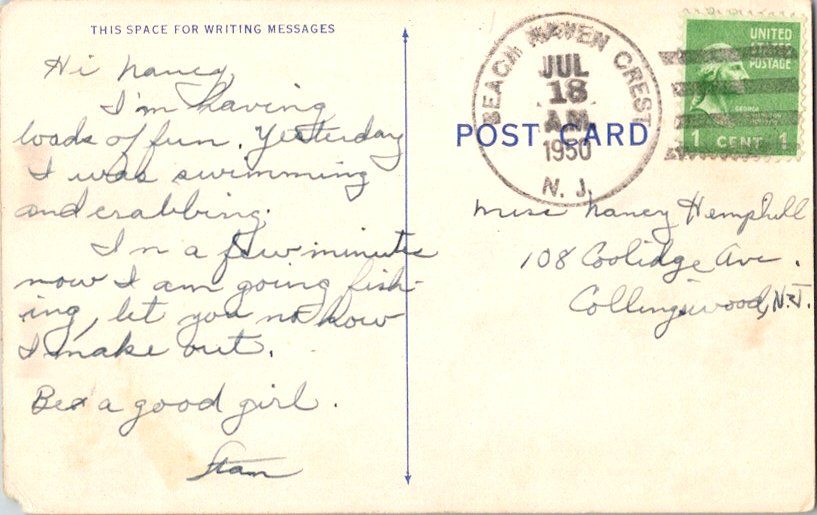 THIS SPACE FOR WRITING MESSAGES
Hi Nancy,
I'm having
loads of fun. Yesterday
I was swimming
and crabbing.
In a few minutes
now I am going fish-
ing, let you no how
I make out.
Be a good girl.
Stan
BEACH HAVEN CREST
JUL
18
AM
1950
N. J.
UNITED
POSTAGE
GEORGE
1 CENT 1
POST CARD
Miss Nancy Hemphill
108 Coolidge Ave.
Collingswood, N.J.